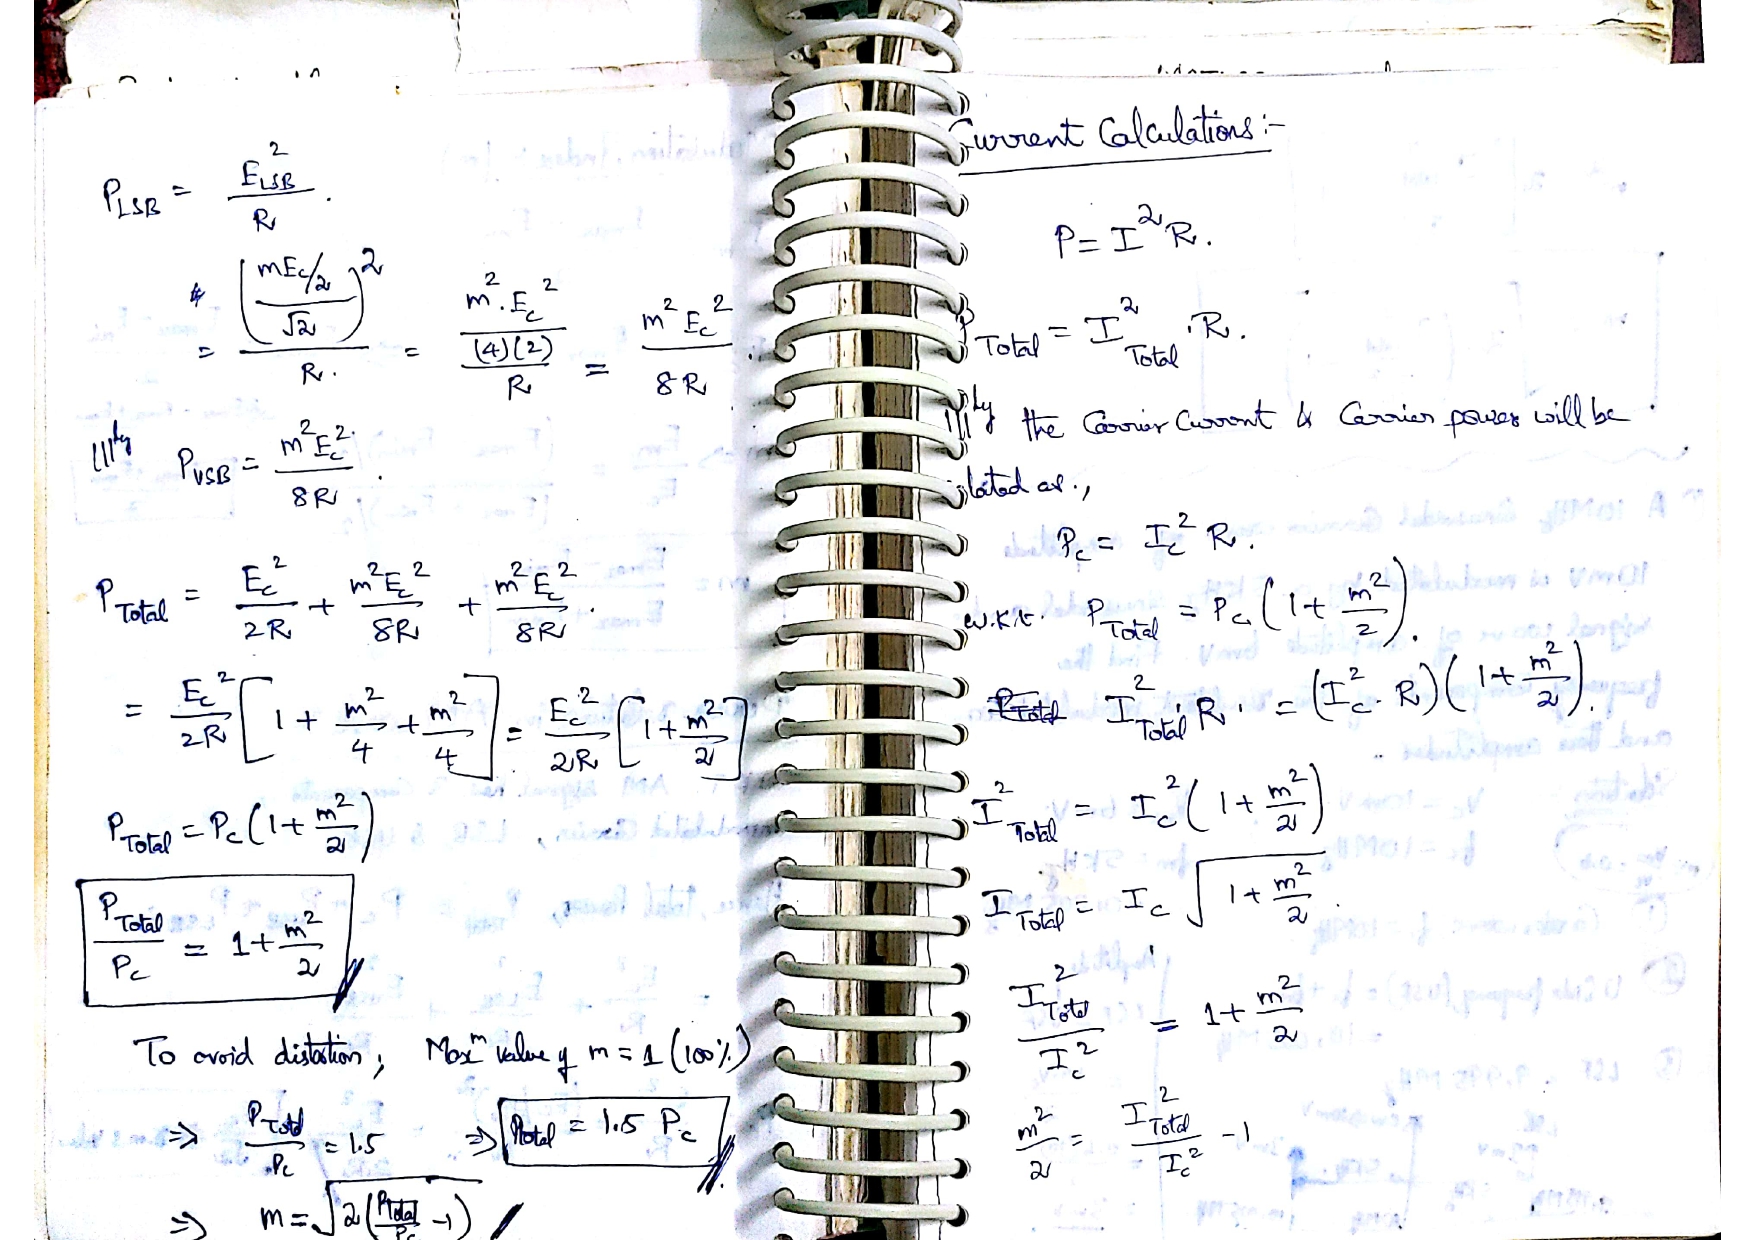 P_LSB = E_LSB^2 / R .
= ( (mEc/2) / √2 )^2 / R . = m^2 . Ec^2 / (4)(2) / R = m^2 Ec^2 / 8R .
|||ly P_USB = m^2 Ec^2 / 8R .
P_Total = Ec^2 / 2R + m^2 Ec^2 / 8R + m^2 Ec^2 / 8R .
= Ec^2 / 2R [ 1 + m^2/4 + m^2/4 ] = Ec^2 / 2R [ 1 + m^2/2 ]
P_Total = Pc ( 1 + m^2/2 )
P_Total / Pc = 1 + m^2/2
To avoid distotion, Maxm value of m = 1 (100%)
⇒ P_Total / Pc = 1.5 ⇒ Ptotal = 1.5 Pc
⇒ m = √( 2 ( Ptotal / Pc - 1 ) )
Current Calculations :-
P = I^2 R .
P_Total = I^2_Total . R .
|||ly the Carrier Current & Carrier power will be
lated as .,
Pc = Ic^2 R .
w.k.t. P_Total = Pc ( 1 + m^2/2 ) .
I^2_Total R . = ( Ic^2 . R ) ( 1 + m^2/2 ) .
I^2_Total = Ic^2 ( 1 + m^2/2 )
I_Total = Ic √( 1 + m^2/2 ) .
I^2_Total / Ic^2 = 1 + m^2/2
m^2/2 = I^2_Total / Ic^2 - 1